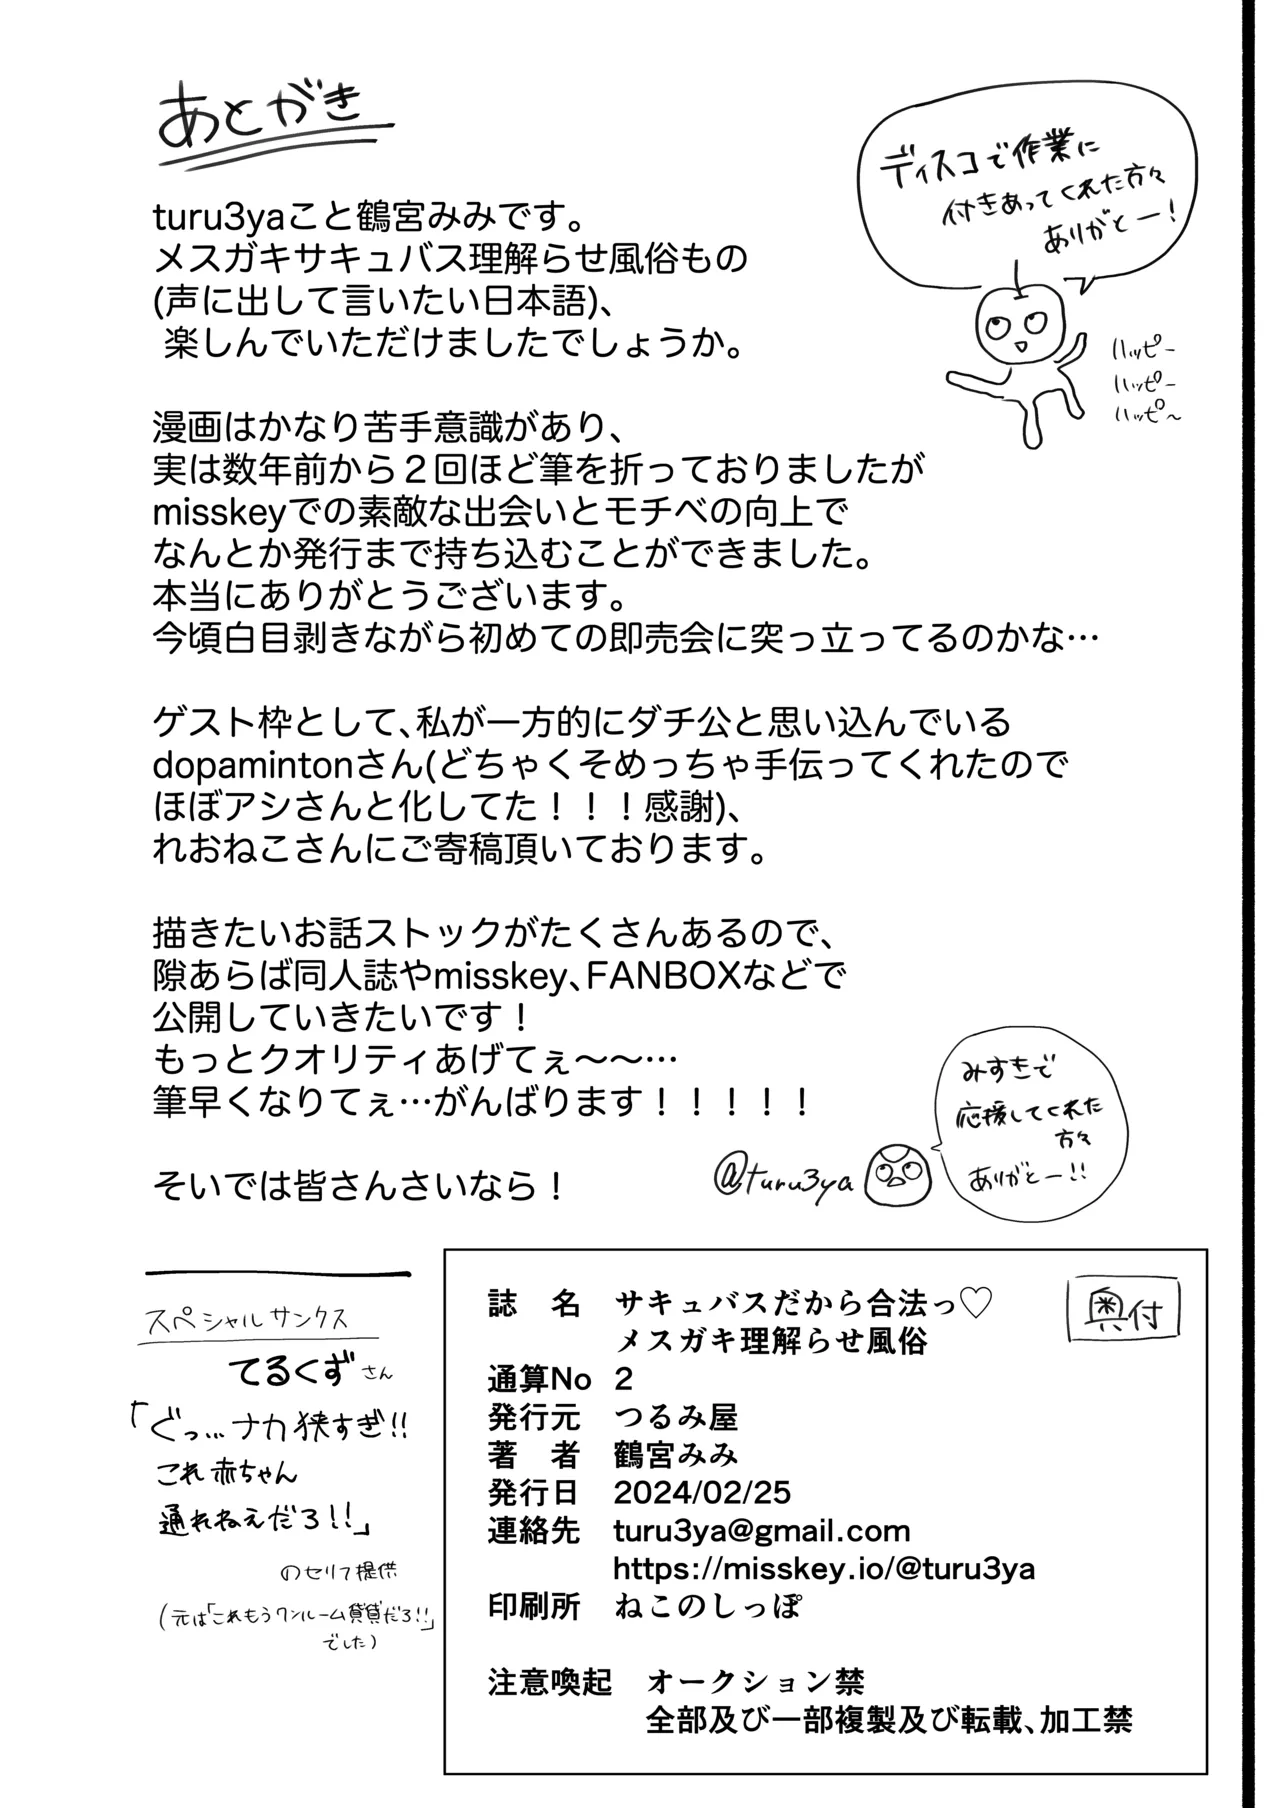 あとがき
ディスコで作業に
付きあってくれた方々
ありがとー!
ハッピー
ハッピー
ハッピ〜
turu3yaこと鶴宮みみです。
メスガキサキュバス理解らせ風俗もの
(声に出して言いたい日本語)、
楽しんでいただけましたでしょうか。
漫画はかなり苦手意識があり、
実は数年前から２回ほど筆を折っておりましたが
misskeyでの素敵な出会いとモチベの向上で
なんとか発行まで持ち込むことができました。
本当にありがとうございます。
今頃白目剥きながら初めての即売会に突っ立ってるのかな…
ゲスト枠として、私が一方的にダチ公と思い込んでいる
dopamintonさん(どちゃくそめっちゃ手伝ってくれたので
ほぼアシさんと化してた！！！感謝)、
れおねこさんにご寄稿頂いております。
描きたいお話ストックがたくさんあるので、
隙あらば同人誌やmisskey、FANBOXなどで
公開していきたいです！
もっとクオリティあげてぇ〜〜…
筆早くなりてぇ…がんばります！！！！！
そいでは皆さんさいなら！
@turu3ya
みすきで
応援してくれた
方々
ありがとー!!
スペシャルサンクス
てるくずさん
「ぐっ...ナカ狭すぎ!!
これ赤ちゃん
通れねえだろ!!」
のセリフ提供
(元は「これもうワンルーム賃貸だろ!!」
でした)
奥付
誌　名　サキュバスだから合法っ♡
メスガキ理解らせ風俗
通算No　2
発行元　つるみ屋
著　者　鶴宮みみ
発行日　2024/02/25
連絡先　turu3ya@gmail.com
https://misskey.io/@turu3ya
印刷所　ねこのしっぽ
注意喚起　オークション禁
全部及び一部複製及び転載、加工禁